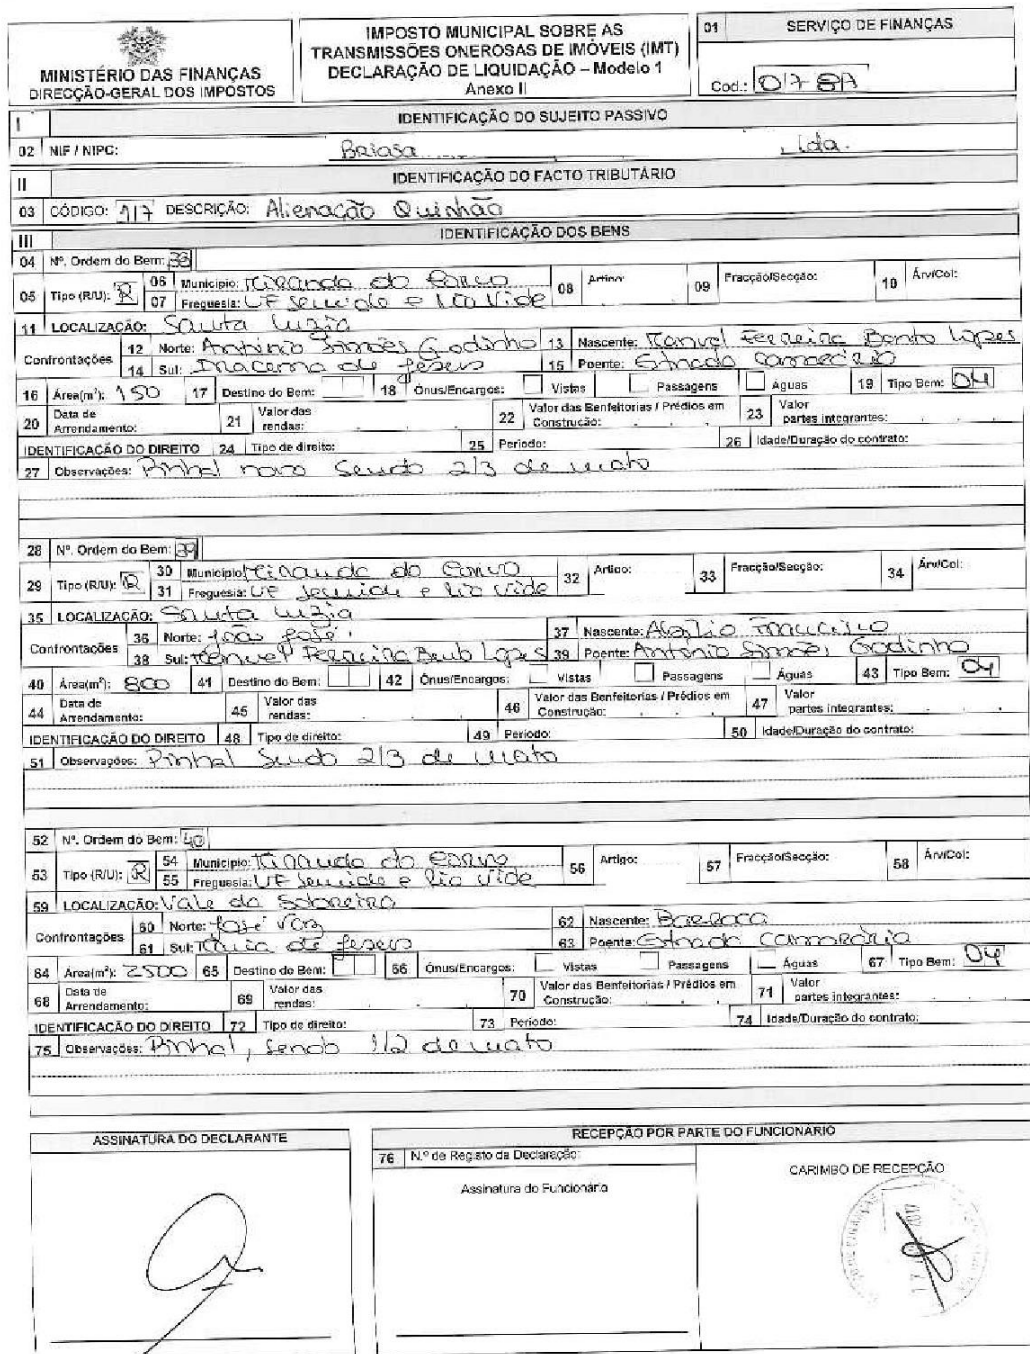 MINISTÉRIO DAS FINANÇAS
DIRECÇÃO-GERAL DOS IMPOSTOS
IMPOSTO MUNICIPAL SOBRE AS
TRANSMISSÕES ONEROSAS DE IMÓVEIS (IMT)
DECLARAÇÃO DE LIQUIDAÇÃO – Modelo 1
Anexo II
01 SERVIÇO DE FINANÇAS
Cod.:
I IDENTIFICAÇÃO DO SUJEITO PASSIVO
02 NIF / NIPC: Lda.
II IDENTIFICAÇÃO DO FACTO TRIBUTÁRIO
03 CÓDIGO: 17 DESCRIÇÃO: Alienação Quinhão
III IDENTIFICAÇÃO DOS BENS
04 Nº. Ordem do Bem: 38
05 Tipo (R/U): R 06 Município: Miranda do Corvo 08 Artigo: 09 Fracção/Secção: 10 Árv/Col:
07 Freguesia: UF Semide e Rio Vide
11 LOCALIZAÇÃO: Santa Luzia
Confrontações 12 Norte: António Simões Godinho 13 Nascente: Manuel Ferreira Bento Lopes
14 Sul: de Jesus 15 Poente: Estrada
16 Área(m²): 150 17 Destino do Bem: 18 Ónus/Encargos: Vistas Passagens Águas 19 Tipo Bem: 04
20 Data de Arrendamento: 21 Valor das rendas: 22 Valor das Benfeitorias / Prédios em Construção: 23 Valor partes integrantes:
IDENTIFICAÇÃO DO DIREITO 24 Tipo de direito: 25 Período: 26 Idade/Duração do contrato:
27 Observações: Pinhal novo sendo 2/3 de mato
28 Nº. Ordem do Bem: 39
29 Tipo (R/U): R 30 Município: Miranda do Corvo 32 Artigo: 33 Fracção/Secção: 34 Árv/Col:
31 Freguesia: UF Semide e Rio Vide
35 LOCALIZAÇÃO: Santa Luzia
Confrontações 36 Norte: João José 37 Nascente: Francisco
38 Sul: Manuel Ferreira Bento Lopes 39 Poente: António Simões Godinho
40 Área(m²): 800 41 Destino do Bem: 42 Ónus/Encargos: Vistas Passagens Águas 43 Tipo Bem: 04
44 Data de Arrendamento: 45 Valor das rendas: 46 Valor das Benfeitorias / Prédios em Construção: 47 Valor partes integrantes:
IDENTIFICAÇÃO DO DIREITO 48 Tipo de direito: 49 Período: 50 Idade/Duração do contrato:
51 Observações: Pinhal sendo 2/3 de mato
52 Nº. Ordem do Bem: 40
53 Tipo (R/U): R 54 Município: Miranda do Corvo 56 Artigo: 57 Fracção/Secção: 58 Árv/Col:
55 Freguesia: UF Semide e Rio Vide
59 LOCALIZAÇÃO: Vale da Sobreira
Confrontações 60 Norte: José Vaz 62 Nascente: Barroca
61 Sul: Maria de Jesus 63 Poente: Estrada Camarária
64 Área(m²): 2500 65 Destino do Bem: 66 Ónus/Encargos: Vistas Passagens Águas 67 Tipo Bem: 04
68 Data de Arrendamento: 69 Valor das rendas: 70 Valor das Benfeitorias / Prédios em Construção: 71 Valor partes integrantes:
IDENTIFICAÇÃO DO DIREITO 72 Tipo de direito: 73 Período: 74 Idade/Duração do contrato:
75 Observações: Pinhal, sendo 1/2 de mato
ASSINATURA DO DECLARANTE
RECEPÇÃO POR PARTE DO FUNCIONÁRIO
76 N.º de Registo da Declaração:
Assinatura do Funcionário
CARIMBO DE RECEPÇÃO